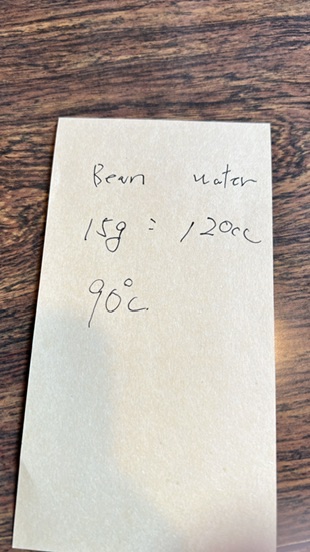 Bean water
15g : 120cc
90°C